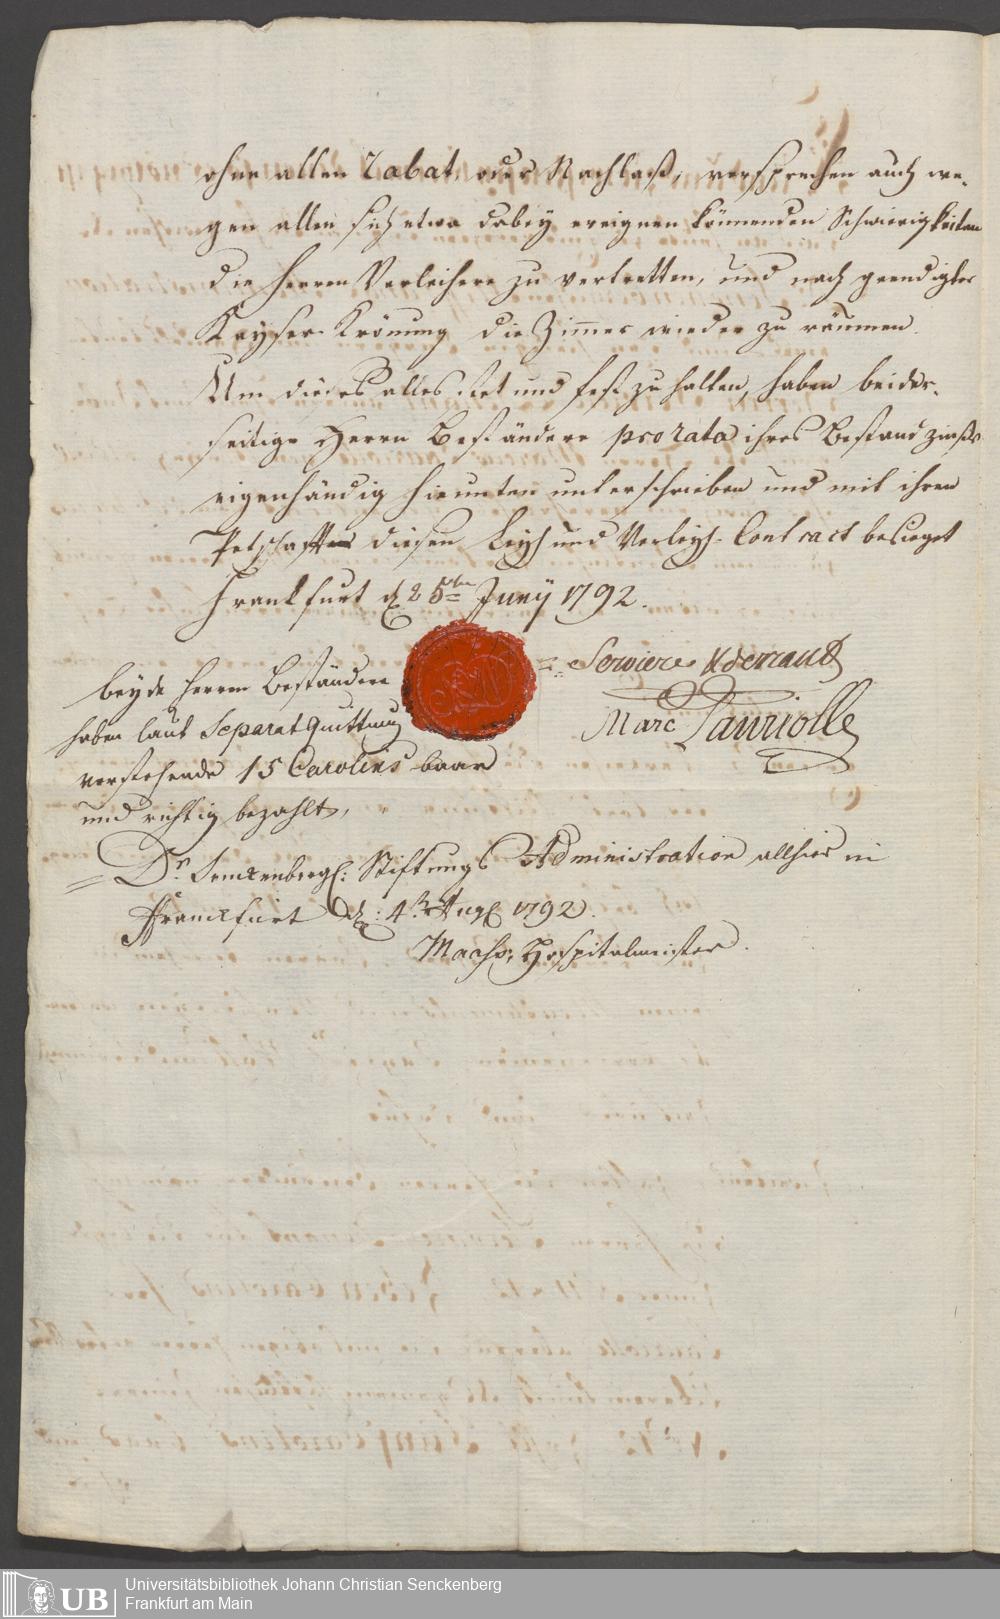 ohne allen Rabat, oder Nachlaß, versprechen auch we-
gen allen sich etwa dabey ereignen könnenden Schwierigkeiten
die Herren Verleihere zu vertretten, und nach geendigter
Kayser-Krönung die Zimmer wieder zu räumen.
Um dieses alles stet und fest zu halten, haben beider-
seitige Herrn Beständere pro rata ihres Bestandzinßs
eigenhändig hierunten unterschrieben und mit ihren
Petschafften diesen Leyh und Verleyh-Contract besieget
Frankfurt d 25ten Juny 1792.
Serviere
Marc Lauriolle
beyde Herrn Beständere
haben laut Separat Quittung
vorstehende 15 Carolins baar
und richtig bezahlt,
Dr. Senckenbergl: Stiftungs Administration allhier in
Franckfurt d: 4ten Augt 1792.
Hospitalmeister.
UB
Universitätsbibliothek Johann Christian Senckenberg
Frankfurt am Main